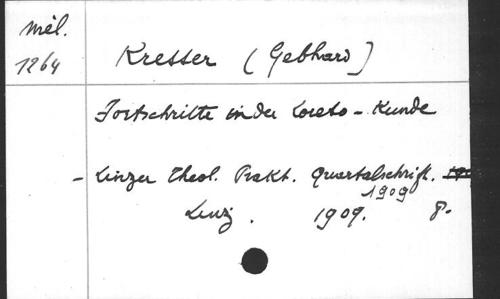 Mél.
1264
Kresser (Gebhard)
Fortschritte in der Loreto-Kunde
- Linzer Theol. Prakt. Quartalschrift.
1909
Linz. 1909. 8.